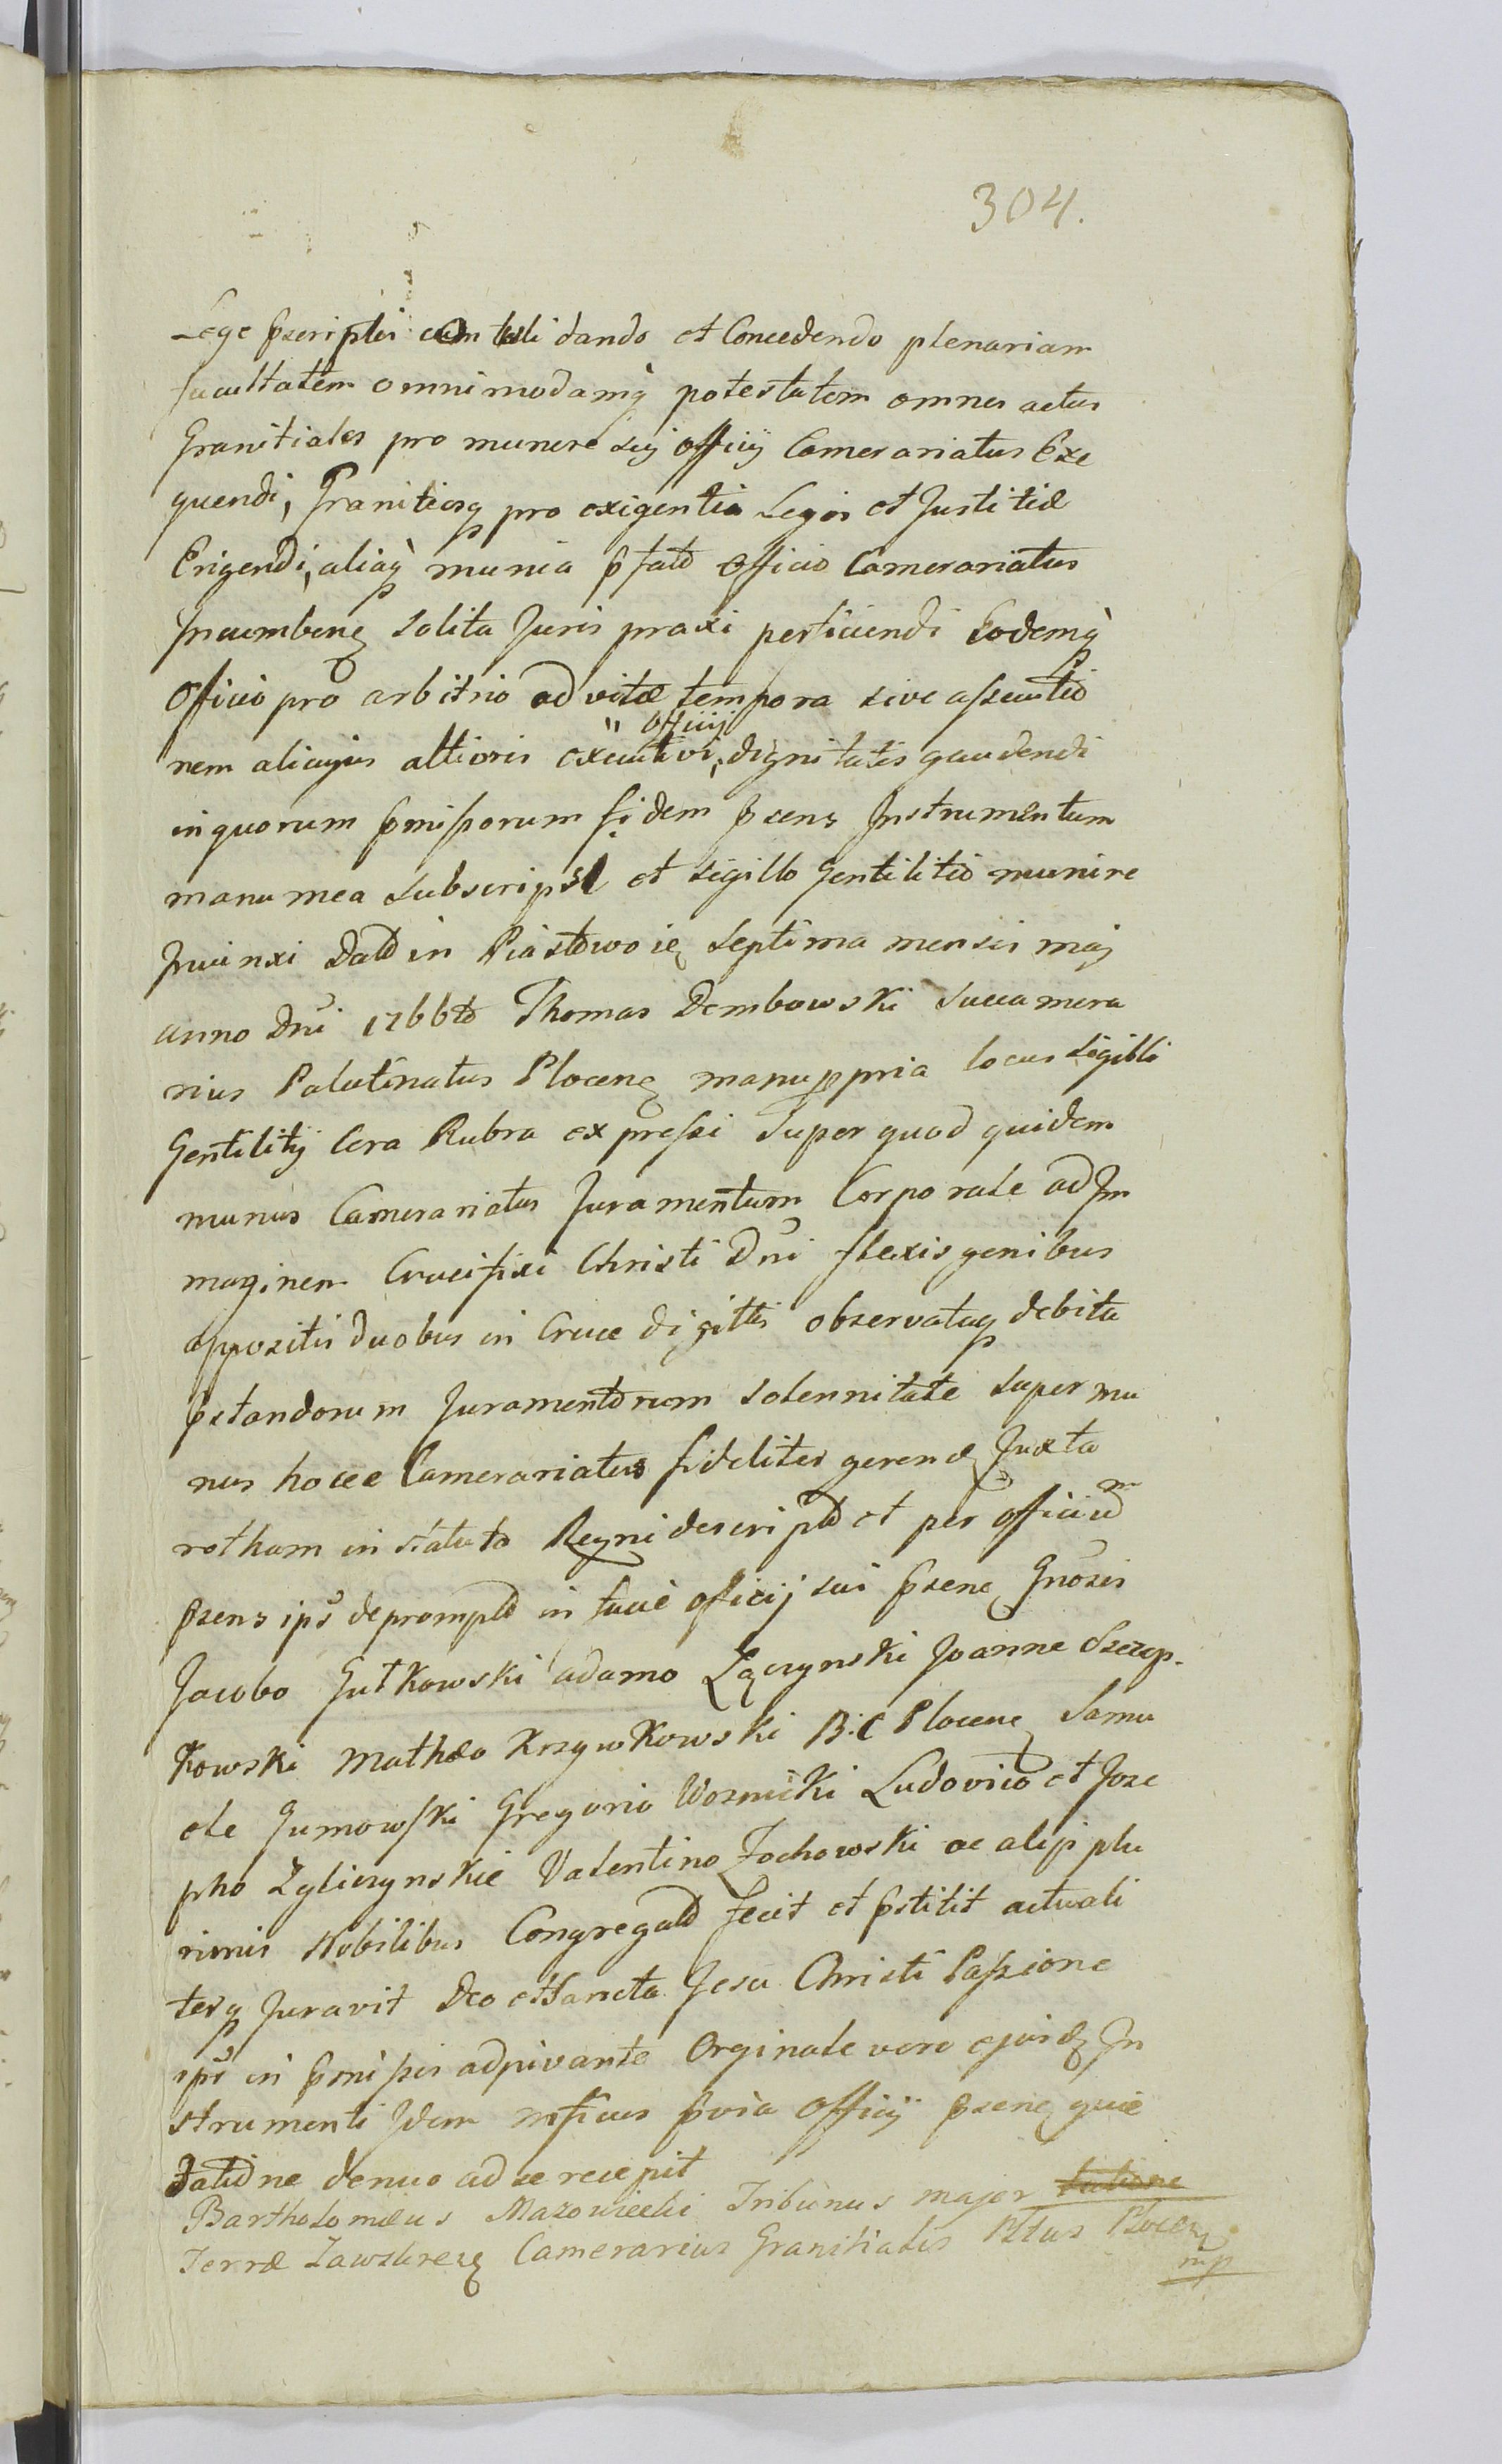 304.
Lege pscriptis cum tali dando et Concedendo plenariam
facultatem omnimodamq potestatem omnes actus
Granitiales pro munere sui officij Camerariatus Exe
quendi, Granitiesq pro exigentia Legis et Justitiæ
Erigendi, aliaq munia pfato officio Camerariatus
Incumben solita Juris praxi perficiendi Eodemq
Officio pro arbitrio ad vitæ tempora sive assecutio
officij
nem alicujus altioris dignitatis gaudendi
in quorum pmissorum fidem psens Instrumentum
manu mea subscripsi et sigillo Gentilitio munire
Jniunxi Datt in Piastowo die septima mensis maj
anno Dni 1766to Thomas Dembowski succamera
rius Palatinatus Plocen manu ppria locus sigilli
Gentilitij Cera Rubra expressi Super quod quidem
munus Camerariatus Juramentum Corporale ad Im
maginem Crucifixi Christi Dni flexis genibus
appositis duobus in Cruce digittis observataq debita
pstandorum Juramentorum solennitate super mu
nus hocce Camerariatus fideliter gerend Juxta
rotham in statuto Regni descriptt et per officium
psens ipsi depromptt in facie officij sui psen Gnosis
Jacobo Gutkowski adamo Łączynski Joanne Szczep-
kowski Mathæo Krzywkowski B: C Plocen Samu
ele Gumowski Gregorio Woznicki Ludovico et Jose
pho Zgliczynskie Valentino Żochowski ac alijs plu
rimis Nobilibus Congregatt fecit et pstitit actuali
terq Juravit Deo et Sancta Jesu Christi Passione
ipsi in pmissis adjuvante Orginale vero ejusd In
strumenti Jdem mficus pvia Officij psen quie
tatione denuo ad se recepit
Bartholomæus Mazowiecki Tribunus major
Terræ Zawskrzen Camerarius Granitialis Pltus Plocen
mp